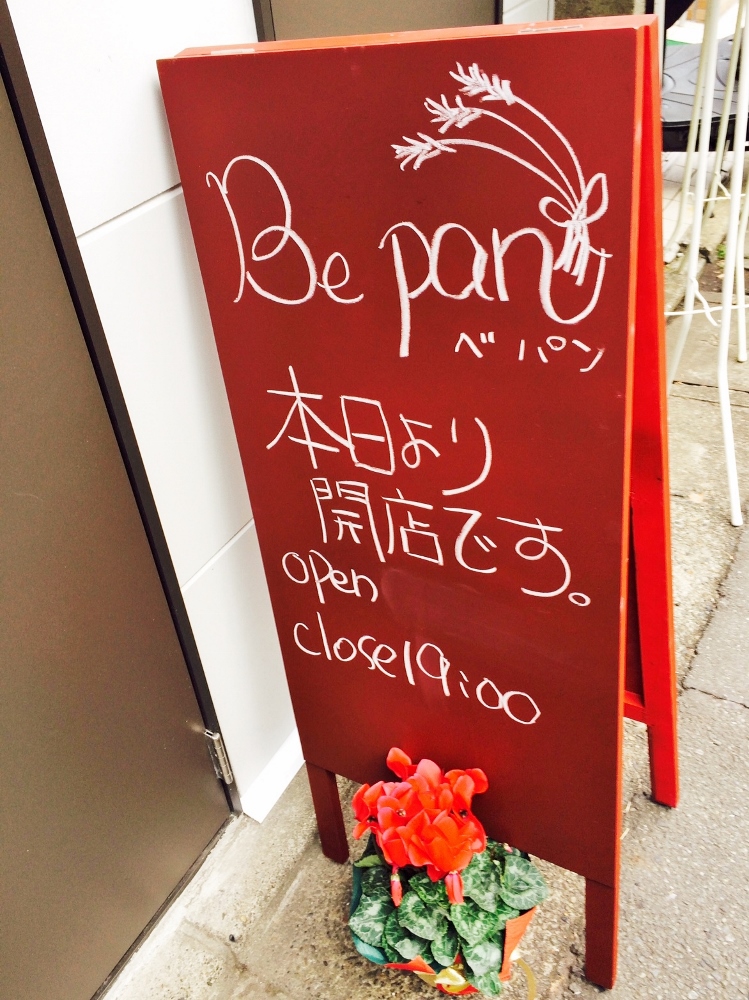 Be pan
ベ パン
本日より
開店です。
open
close 19:00